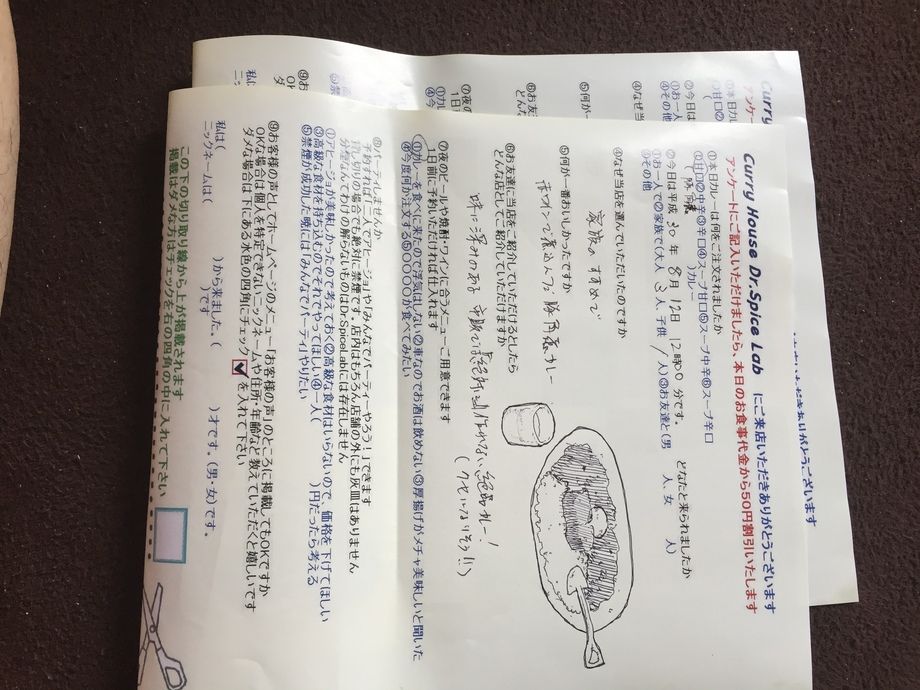 Curry House Dr.Spice Lab にご来店いただきありがとうございます
アンケートにご記入いただけましたら、本日のお食事代金から50円割引いたします
①本日カレーは何をご注文されましたか
①甘口②中辛③辛口④スープ甘口⑤スープ中辛⑥スープ辛口
( )カレー
②今日は平成 30 年 8 月 12日 12時00 分です。 どなたと来られましたか
①お一人で②家族で(大人 3 人、子供 / 人)③お友達と(男 人、女 人)
④その他
④なぜ当店を選んでいただいたのですか
家族のすすめで
⑤何が一番おいしかったですか
赤ワインで煮込んだ豚角煮カレー
⑥お友達に当店をご紹介していただけるとしたら
どんな店としてご紹介していただけますか
味に深みのある 絶品カレー!
(クセになりそう!!)
⑦夜のビールや焼酎・ワインに合うメニューご用意できます
1日前に予約いただければ仕入れます
①カレーを食べに来たので浮気はしない②車なのでお酒は飲めない③厚揚げがメチャ美味しいと聞いた
④今度何か注文する⑤〇〇〇〇が食べてみたい
⑧パーティしませんか
予約すれば「二人でアヒージョ」や「みんなでパーティーやろう!」できます
貸し切りの場合でも絶対に禁煙です。店内はもちろん店舗の外にも灰皿はありません
分煙なんてわけの解らないものはDr.SpiceLabには存在しません
①アヒージョが美味しかったので考えておく②高級な食材はいらないので、価格を下げてほしい
③高級な食材を持ち込むのでそれでやってほしい④一人( )円だったら考える
⑤禁煙が成功した暁には「みんなでパーティ」やりたい
⑨お客様の声としてホームページのメニュー「お客様の声」のところに掲載してもOKですか
OKな場合は個人を特定できないニックネームや住所・年齢など教えていただくと嬉しいです
ダメな場合は下にある水色の四角にチェック ✓ を入れて下さい
私は( )から来ました。( )才です。(男・女)です。
ニックネームは( )です
この下の切り取り線から上が掲載されます
掲載はダメな方はチェックを右の四角の中に入れて下さい